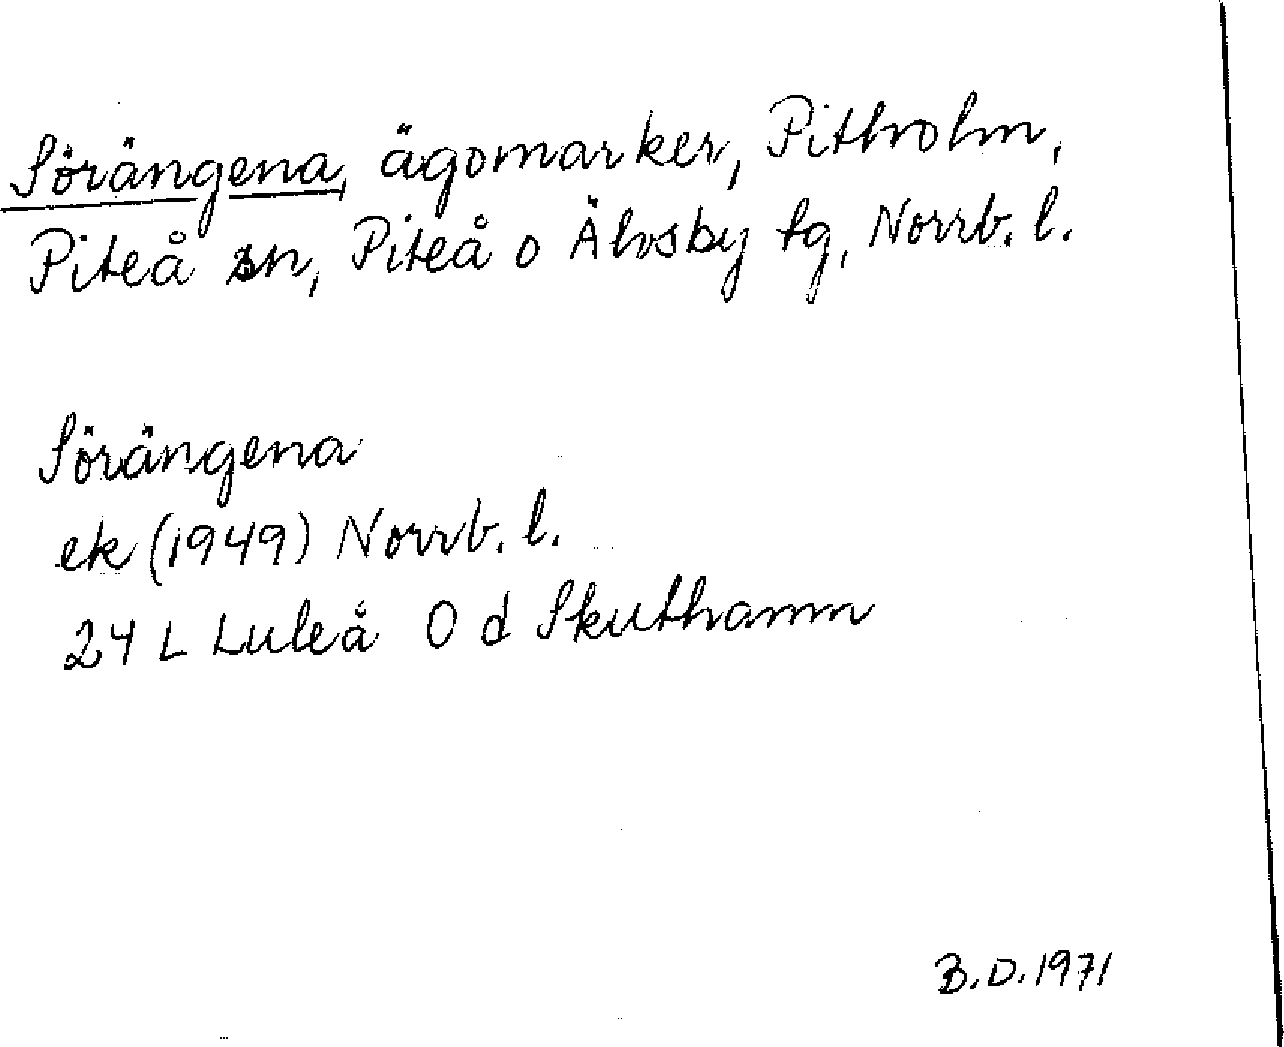 Sörängena, ägomarker, Pitholm,
Piteå sn, Piteå o Älvsby tg, Norrb. l.
Sörängena
ek (1949) Norrb. l.
24 L Luleå 0 d Skuthamn
B.D. 1971